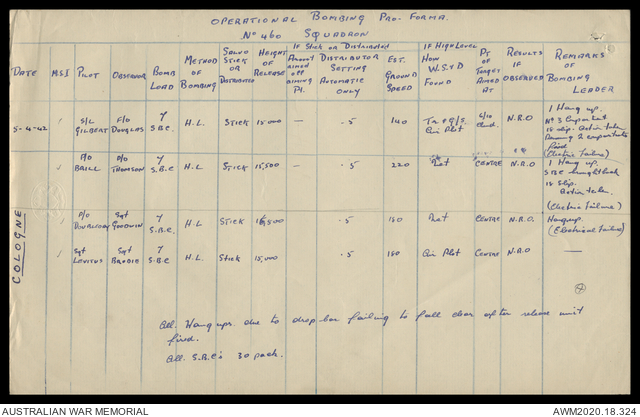 OPERATIONAL BOMBING PRO-FORMA.
No 460 SQUADRON
DATE
M.S.I
PILOT
OBSERVOR
BOMB LOAD
METHOD OF BOMBING
SALVO STICK OR DISTRIBUTED
HEIGHT OF RELEASE
IF STICK OR DISTRIBUTED
AMOUNT aimed off aiming Pt.
DISTRIBUTOR SETTING AUTOMATIC ONLY
EST. GROUND SPEED
IF HIGH LEVEL HOW W.S.&D FOUND
PT OF TARGET AIMED AT
RESULTS IF OBSERVED
REMARKS OF BOMBING LEADER
5-4-42 S/L GILBERT F/O DOUGLAS 7 S.B.C. H.L. STICK 15000 — .5 140 Air Plot N.R.O 1 Hang up.
(Electric failure)
P/O BRILL P/O THOMSON 7 S.B.C H.L STICK 15,500 .5 220 Plot CENTRE N.R.O 1 Hang up. SBC brought back
Action taken.
(Electric failure)
P/O Sgt GOODWIN 7 S.B.C. H.L STICK .5 180 Plot CENTRE N.R.O. Hangup. (Electrical failure)
Sgt LEVITUS Sgt BRODIE 7 S.B.C H.L. STICK 15,000 .5 180 Air Plot CENTRE N.R.O —
COLOGNE
All. Hang ups. due to drop bar failing to fall clear after release unit
fired.
All. S.B.C's 30 pack.
AUSTRALIAN WAR MEMORIAL
AWM2020.18.324